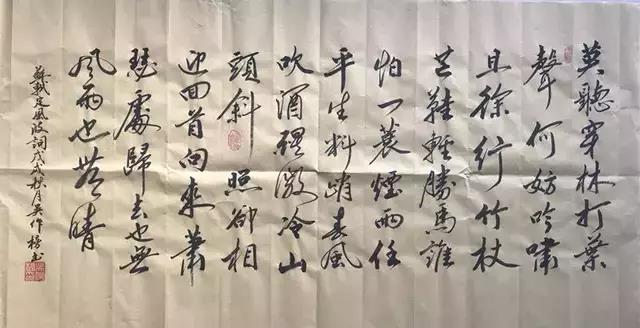 莫聽穿林打葉
聲何妨吟嘯
且徐行竹杖
芒鞋輕勝馬誰
怕一蓑煙雨任
平生料峭春風
吹酒醒微冷山
頭斜照卻相
迎回首向來蕭
瑟處歸去也無
風雨也無晴
蘇軾定風波詞戊戌秋月吳作書